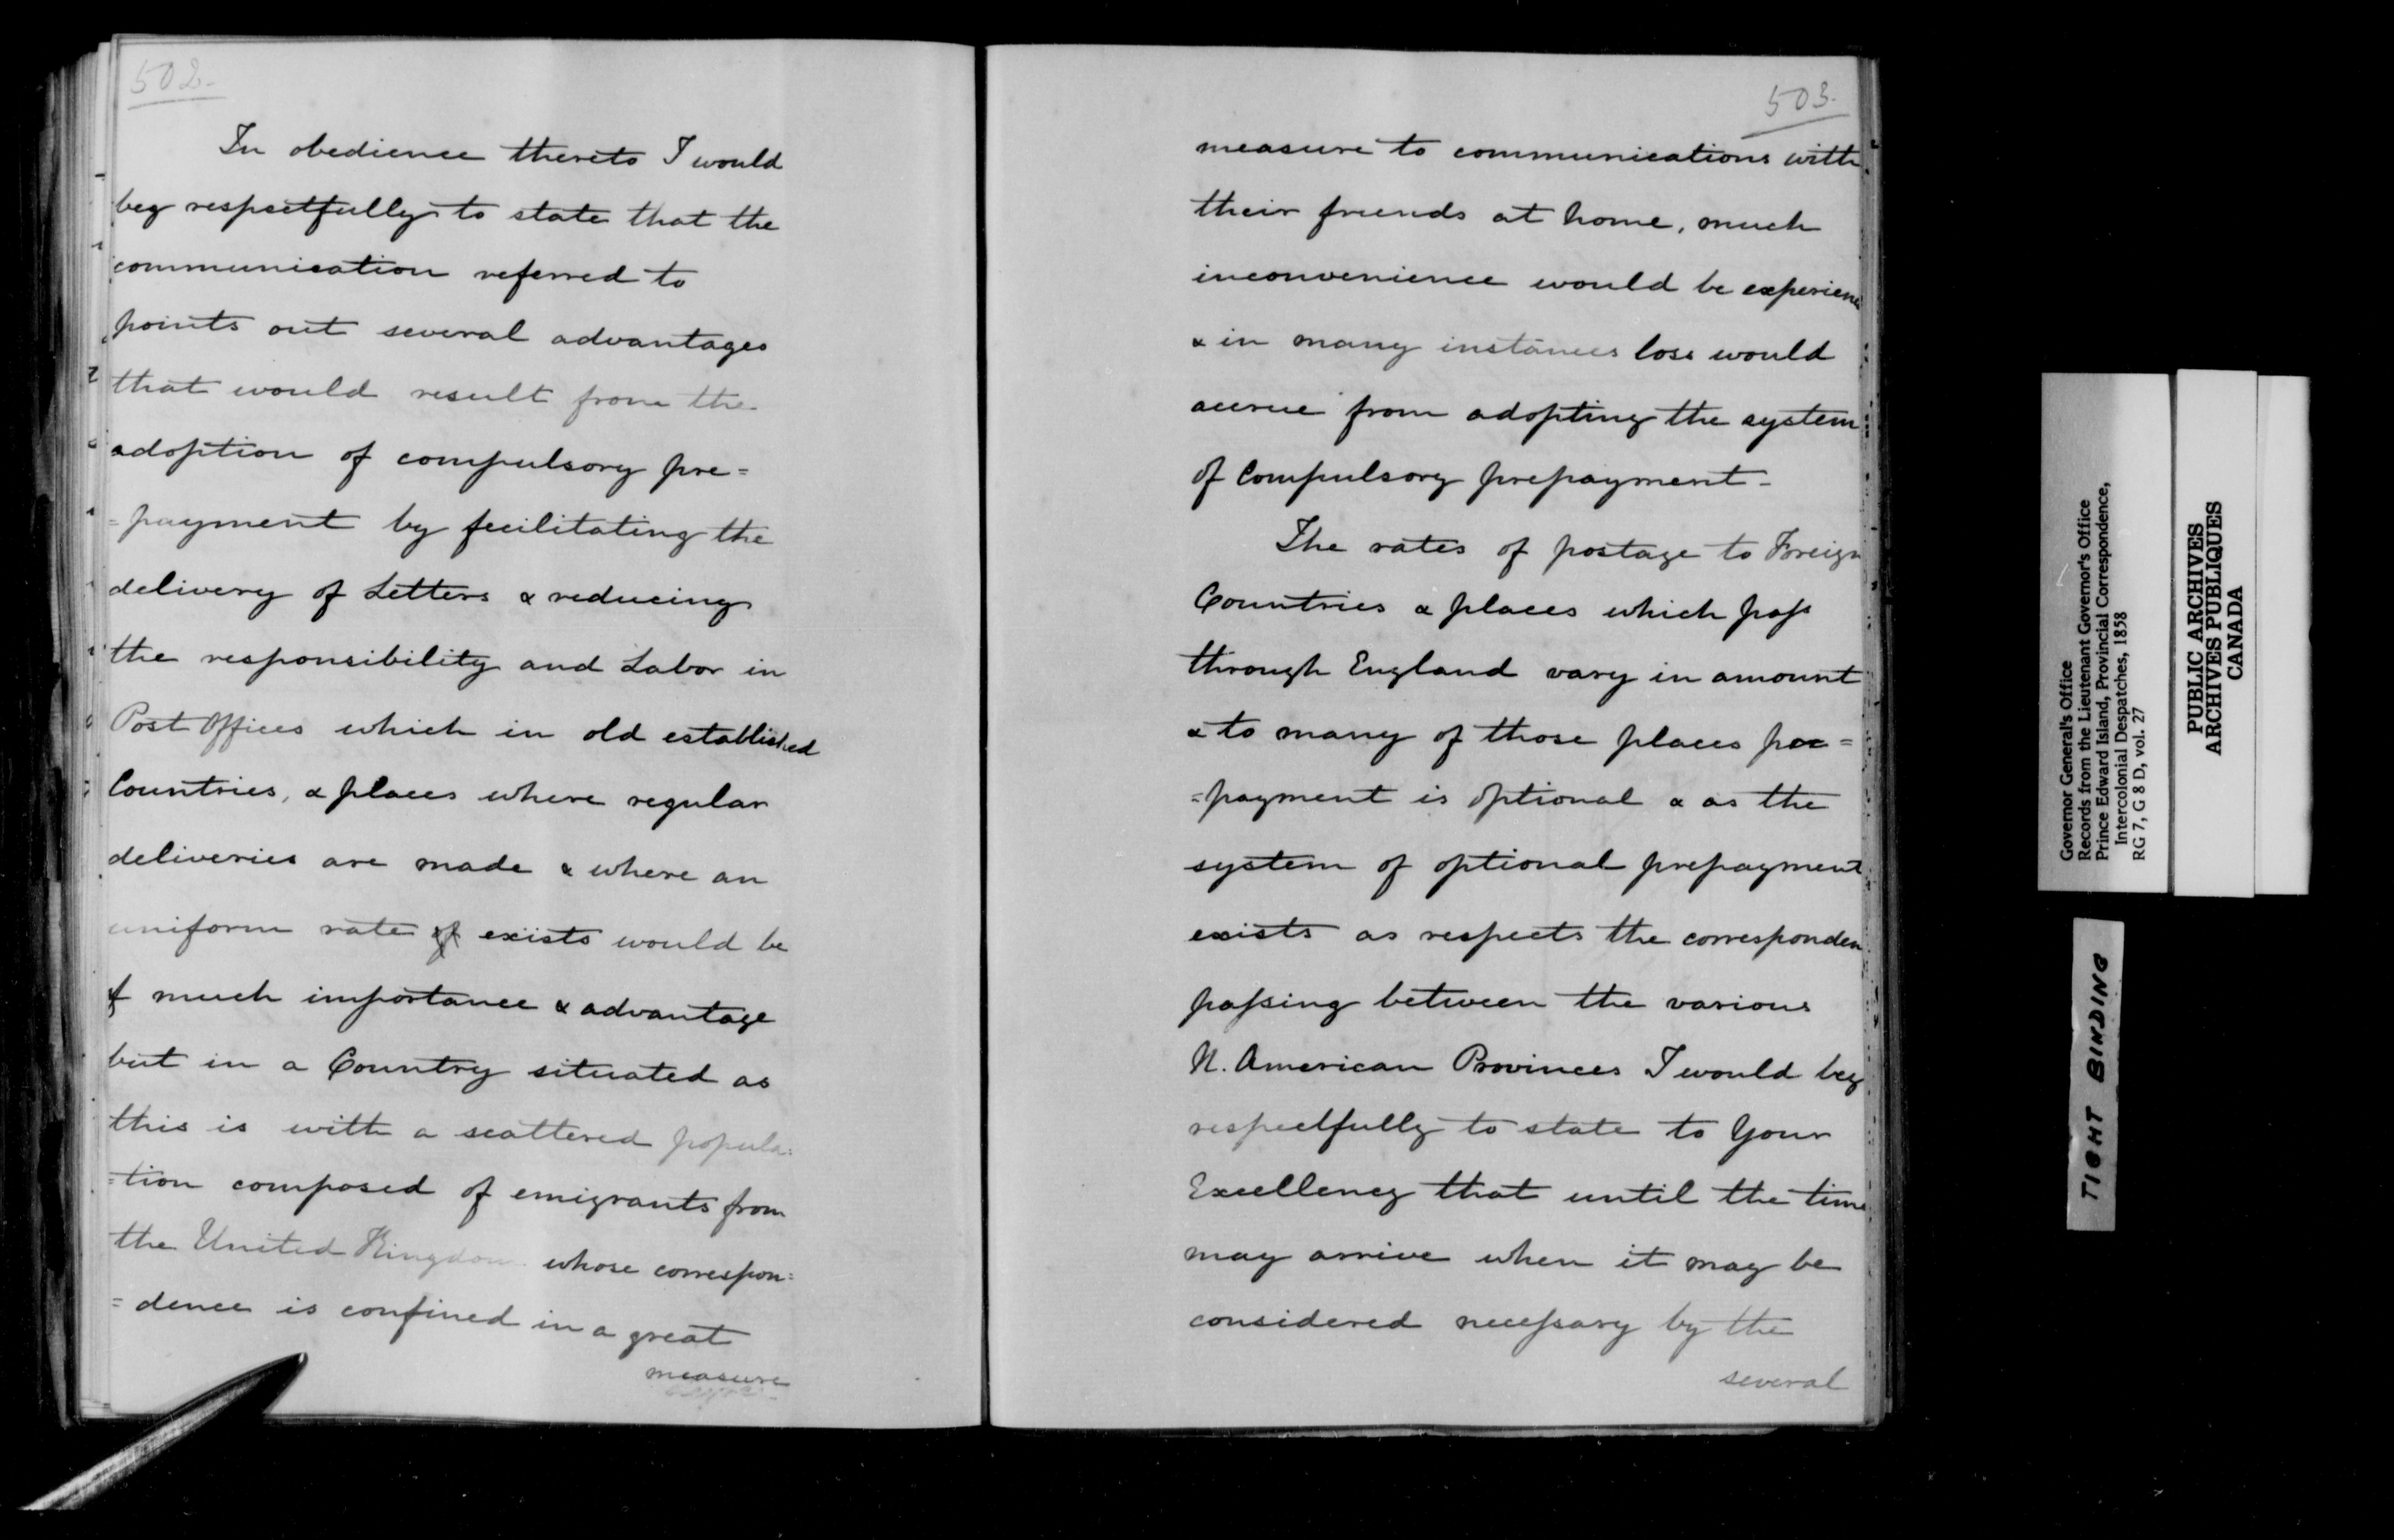 502.
In obedience thereto I would
beg respectfully to state that the
communication referred to
points out several advantages
that would result from the
adoption of compulsory pre=
=payment by facilitating the
delivery of Letters & reducing
the responsibility and Labor in
Post Offices which in old established
Countries, & places where regular
deliveries are made & where an
uniform rate of exists would be
of much importance & advantage
but in a Country situated as
this is with a scattered popula=
=tion composed of emigrants from
the United Kingdom whose correspon=
=dence is confined in a great
measure
503.
measure to communications with
their friends at home, much
inconvenience would be experienc
& in many instances loss would
accrue from adopting the system
of Compulsory prepayment-
The rates of postage to Foreign
Countries & places which pass
through England vary in amount
& to many of those places pre=
=payment is optional & as the
system of optional prepayment
exists as respects the corresponden
passing between the various
N. American Provinces I would beg
respectfully to state to Your
Excellency that until the time
may arrive when it may be
considered necessary by the
several
Governor General's Office
Records from the Lieutenant Governor's Office
Prince Edward Island, Provincial Correspondence,
Intercolonial Despatches, 1858
RG 7, G 8 D, vol. 27
PUBLIC ARCHIVES
ARCHIVES PUBLIQUES
CANADA
TIGHT BINDING